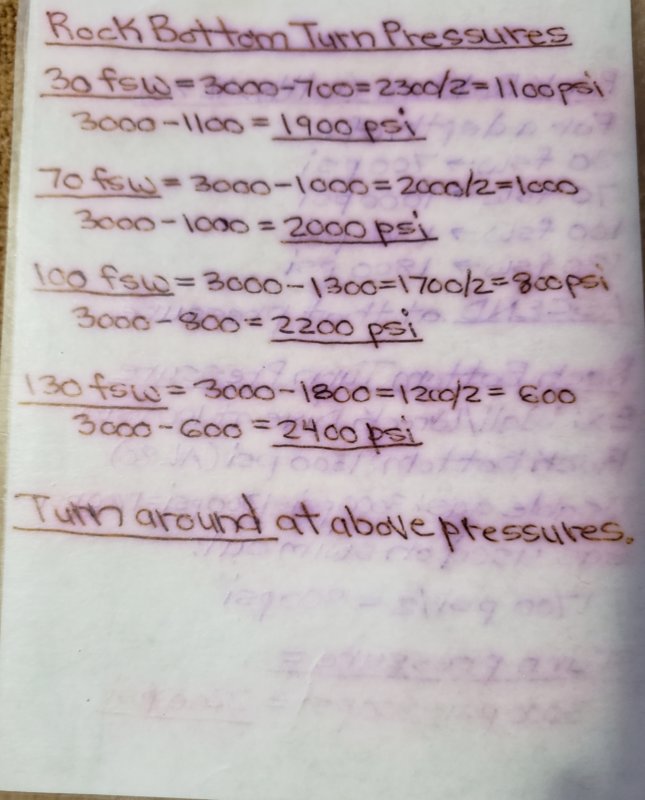 Rock Bottom Turn Pressures
30 fsw = 3000-700=2300/2=1100psi
3000-1100 = 1900 psi
70 fsw = 3000-1000=2000/2=1000
3000-1000 = 2000 psi
100 fsw = 3000-1300=1700/2=800psi
3000-800=2200 psi
130 fsw = 3000-1800=1200/2= 600
3000-600=2400 psi
Turn around at above pressures.